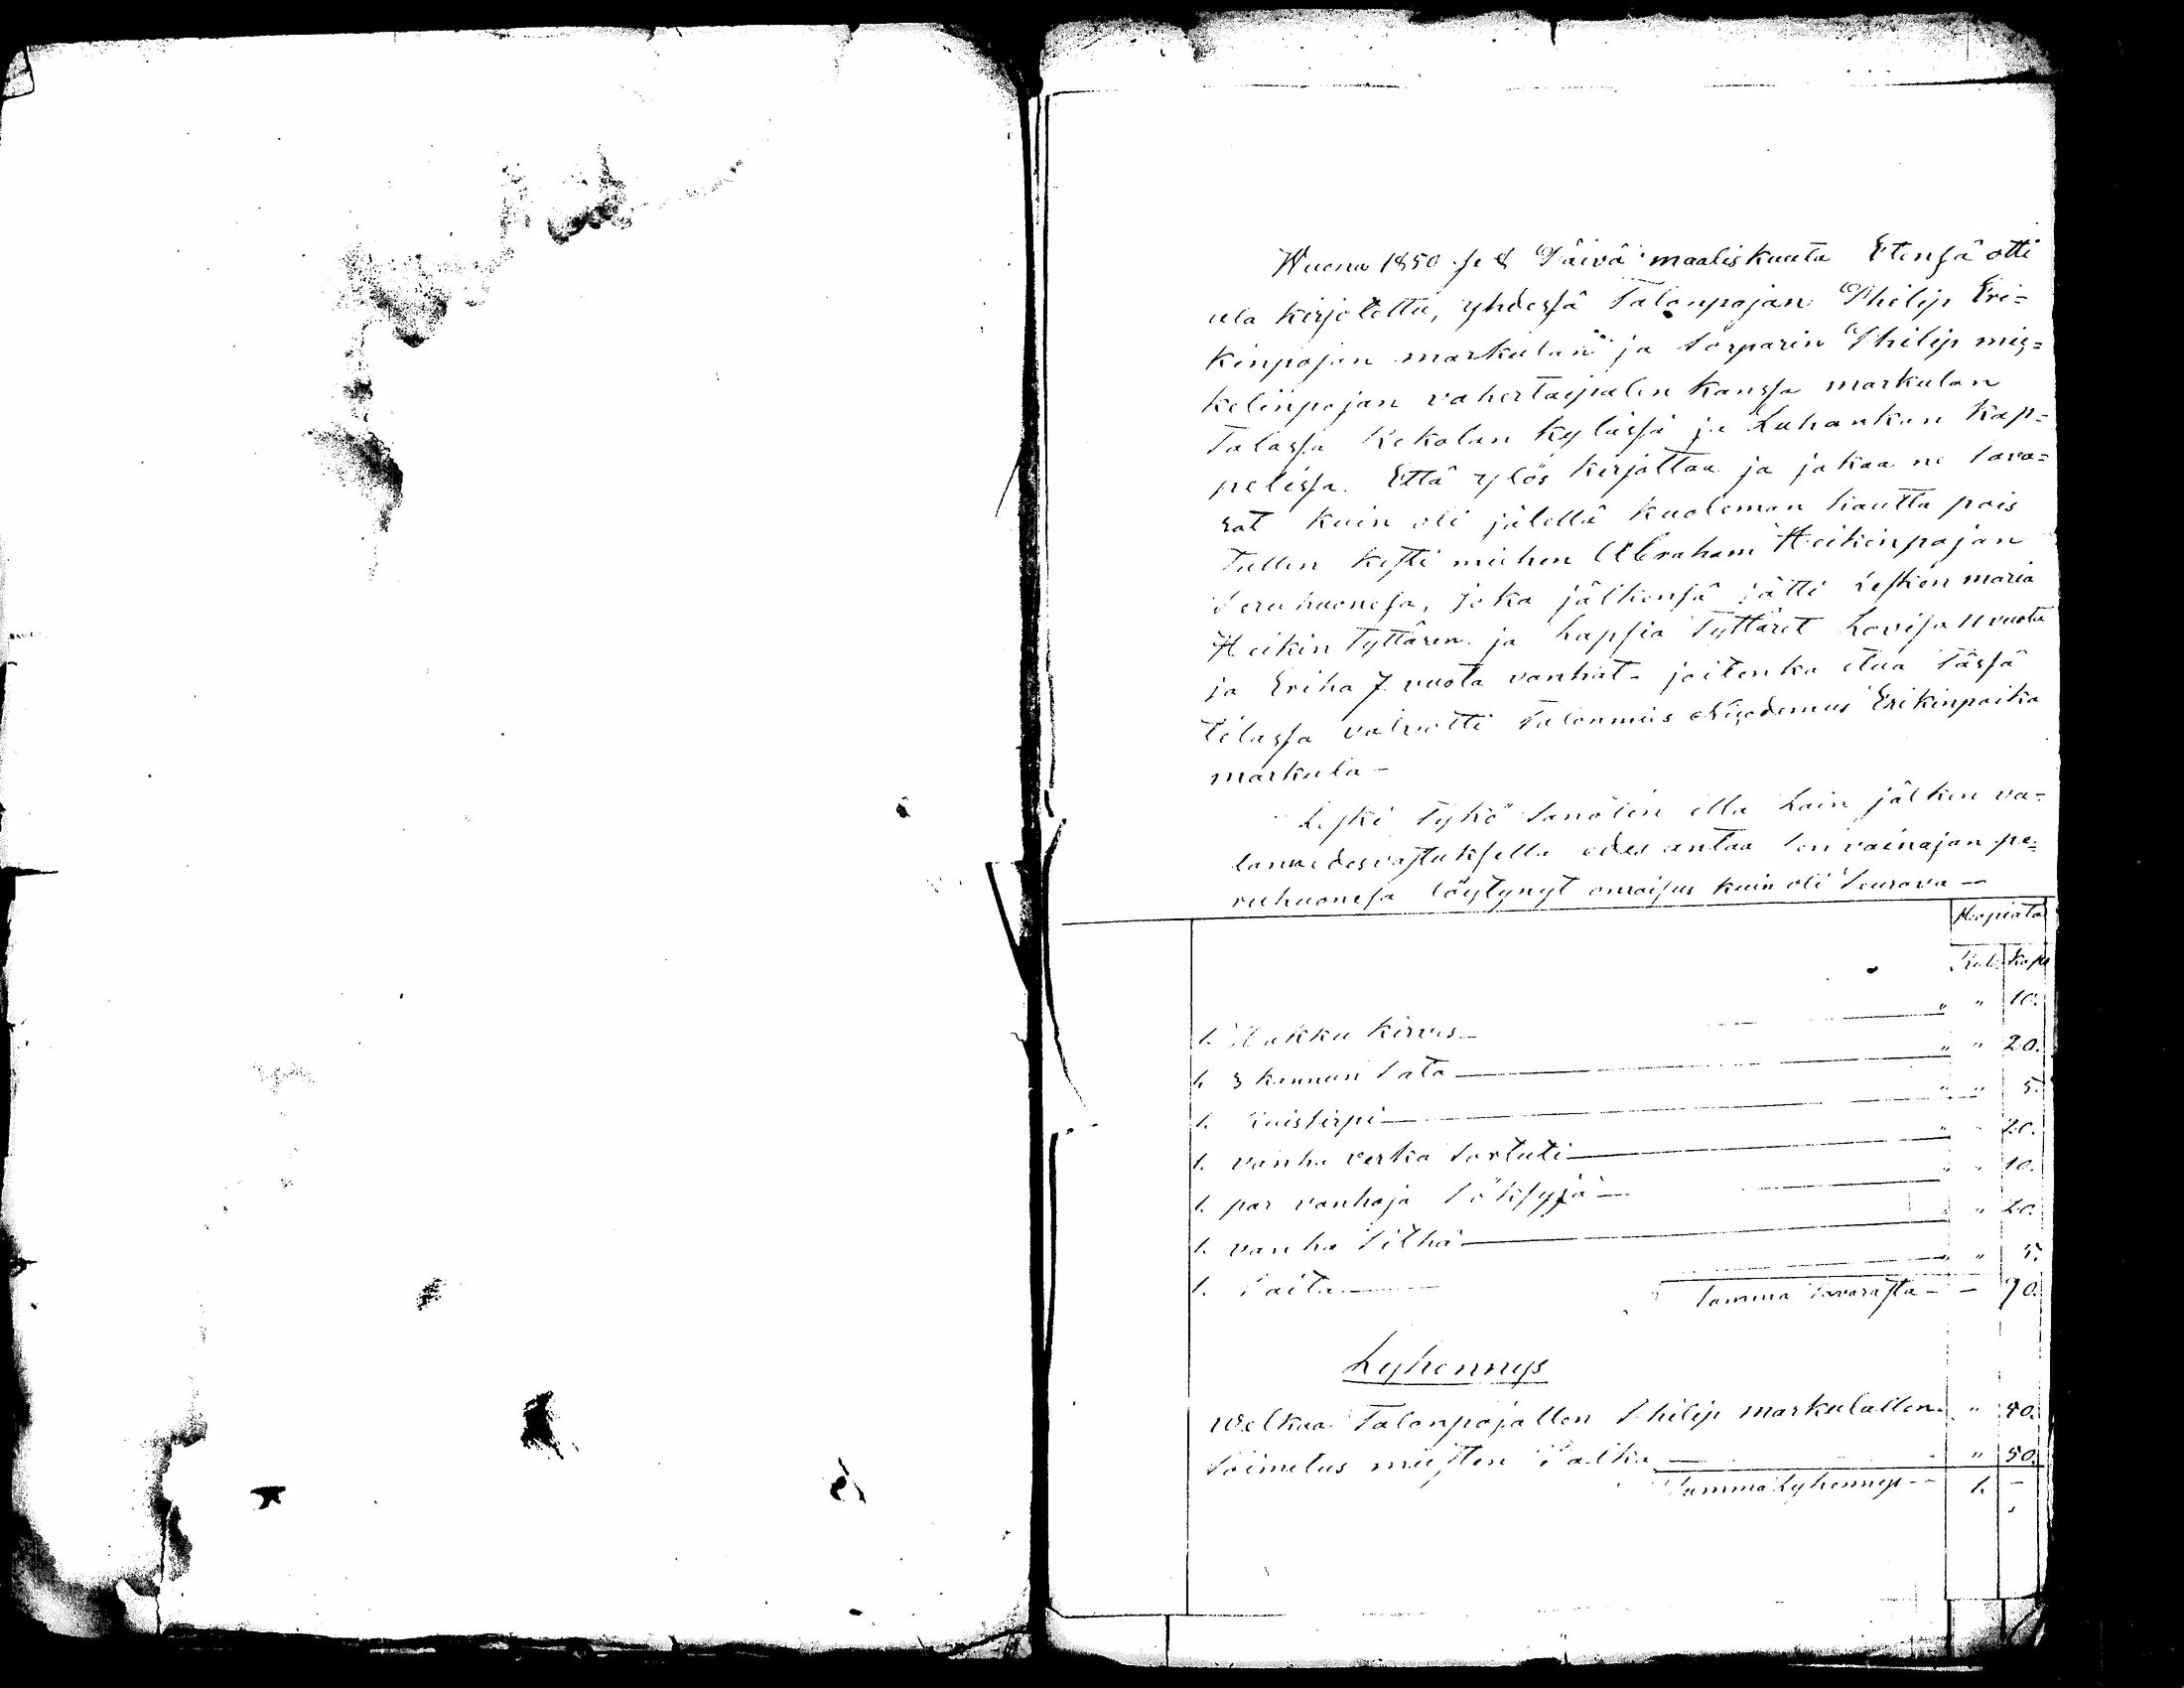 Wuona 1850 se 8 Päivä maaliskuuta Etensä otti
ala kirjotettu, yhdessä Talonpojan Philip Eri=
kinpojan markulan ja torparin Philip mis=
kelinpojan vahertaipalen kanssa markulan
Talossa Kekolan kylässä ja Luhankan Kap=
pelissa. Että ylös kirjottaa ja jakaa ne tava=
rat kuin oli jälellä kuoleman kautta pois
tullen kesti miehen Abraham Heikinpojan
Peruhuonesa, joka jälkensä jätti Lesken maria
Heikin Tyttären ja Lapsia Tyttäret Lovisa 11 vuota
ja Erika 7 vuota vanhat - joitenka etua Tässä
tilassa valvotti Talonmies Nicodemus Erikinpoika
markula -
Leski Tykö sanotin ella Lain jälken va=
lanne desvastuksella edes antaa sen vainajan pe=
ruhuonesa löytynyt omaisus kuin oli seurava -
Hopiata
Rub. kope
1. Hakku kirves - " " 10.
1. 3 kannun Pata " " 20.
1. " " 5.
1. vanha verka sortuti " " 20.
1. par vanhoja Söksyjä " " 10.
1. vanha Silhä " " 20.
1. Paita " " 5.
Summa tavarasta - - 90.
Lyhennys
Welkaa Talonpojallen Philip markulallen " 40.
Toimitus miesten Palka " 50.
Summa Lyhennys - 1. -